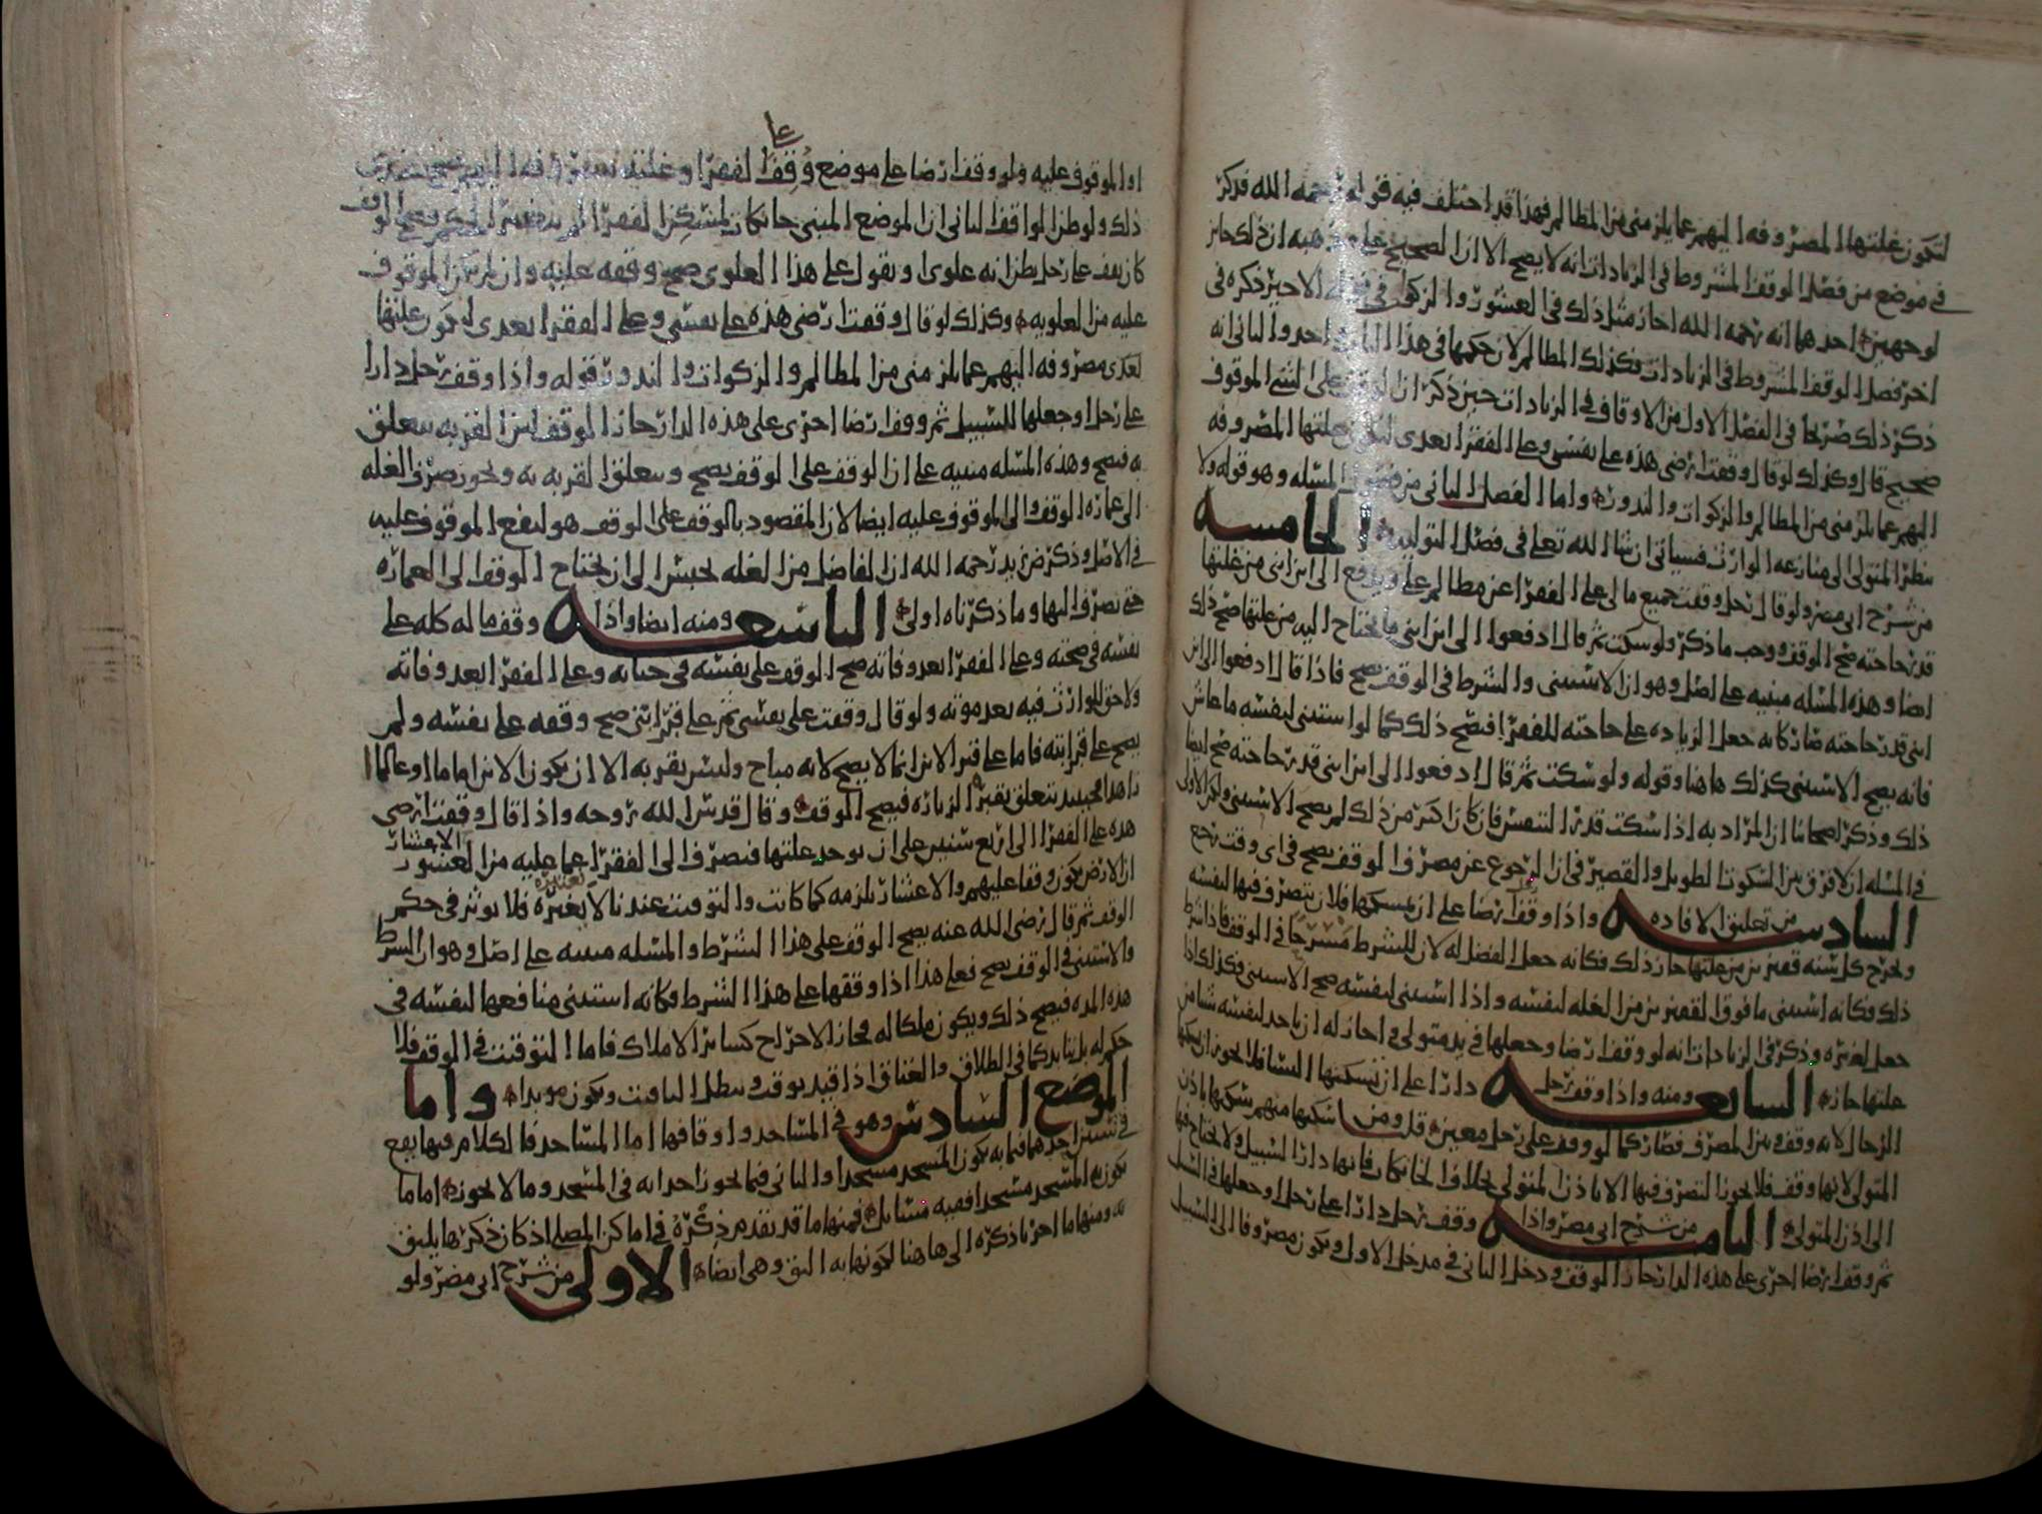 لتكون غلتها المصروفه اليهم عما يلزمني من المظالم فهذا قد اختلف فيه قوله رحمه الله فذكر
في موضع من فصل الوقف المشروط في الزيادات انه لا يصح الا ان الصحيح على مذهبه ان ذلك جائز
لوجهين احدهما انه رحمه الله اجاز مثل ذلك في العشور والزكوات في الاخير ذكره في
اخر فصل الوقف المشروط في الزيادات فكذلك المظالم لان حكمها في هذا الباب واحد والثاني انه
ذكر ذلك صريحا في الفصل الاول من الاوقاف في الزيادات حين ذكر ان الوقف على الموقوف
صحيح قال وكذلك لو قال وقفت ارضي هذه على نفسي وعلى الفقرا بعدي لتكون غلتها المصروفه
اليهم عما يلزمني من المظالم والزكوات والنذور واما الفصل الثاني من المسله وهو قوله ولا
ينظر المتولي الى منازعه الوارث فسياتي ان شا الله تعلى في فصل التوليه الخامسه
من شرح ابي مضر ولو قال رجل وقفت جميع مالي على الفقرا عن مظالم علي ويدفع الى ابن ابني من غلتها
قدر حاجته صح الوقف ووجب ما ذكر ولو سكت ثم قال ادفعوا الى ابن ابني ما يحتاج اليه من غلتها صح ذلك
ايضا وهذه المسله مبنيه على اصل وهو ان الاستثنى والشرط في الوقف يصح فاذا قال ادفعوا الى ابن
ابني قدر حاجته صار كانه جعل الزياده على حاجته للفقرا فصح ذلك كما لو استثنى لنفسه ما عاش
فانه يصح الاستثنى كذلك هاهنا وقوله ولو سكت ثم قال ادفعوا الى ابن ابني قدر حاجته صح ايضا
ذلك وذكر اصحابنا ان المراد به اذا سكت قدر التنفس فان كان اكثر من ذلك لم يصح الاستثنى ولكن الاولى
في المسله ان لا فرق بين السكوت الطويل والقصير في ان الرجوع عن مصرف الوقف يصح في اي وقت رجع
السادسه من تعليق الافاده واذا وقف ارضا على ان يمسكها فلان يتصرف فيها لنفسه
ويخرج كل سنه قفيزين من غلتها جاز ذلك فكانه جعل الفضل له لان للشرط مسرحا في الوقف فاذا شرط
ذلك فكانه استثنى ما فوق القفيزين من الغله لنفسه واذا استثنى لنفسه صح الاستثنى فكذلك اذا
جعل لغيره وذكر في الزيادات انه لو وقف ارضا وجعلها في يد متولي في اجاز له ان ياخذ لنفسه شيا من
غلتها جاز السابعه ومنه واذا وقف رجل دارا على ان يسكنها النسا فلا يجوز ان يسكنها
الرجال لانه وقف وبين المصرف فصار كما لو وقف على رجل معين قل ومن اسكنها منهم يسكنها باذن
المتولي لانها وقف فلا يجوز التصرف فيها الا باذن المتولي بخلاف الخانكاه فانها دار السبيل ولا يحتاج فيها
الى اذن المتولي الثامنه من شرح ابي مضر واذا وقف رجل دارا على رجل او جعلها في السبيل
ثم وقف ارضا اخرى على هذه الدار جاز الوقف ودخل الثاني في مدخل الاول ويكون مصروفا الى السبيل
او الموقوف عليه ولو وقف ارضا على موضع وقف على الفقرا وغلته
ذلك ولو ظن الواقف الثاني ان الموضع المبني خانكاه ليسكن الفقرا
كان يقف على رجل يظن انه علوي او يقول على هذا العلوي صح وقفه عليه وان لم يكن الموقوف
عليه من العلويه وكذلك لو قال وقفت ارضي هذه على نفسي وعلى الفقرا بعدي لتكون غلتها
بعدي مصروفه اليهم عما يلزمني من المظالم والزكوات والنذور قوله واذا وقف رجل دارا
على رجل او جعلها للسبيل ثم وقف ارضا اخرى على هذه الدار جاز الوقف لان القربه يتعلق
به فيصح وهذه المسله مبنيه على ان الوقف على الوقف يصح ويتعلق القربه به ويجوز صرف الغله
الى عماره الوقف والى الموقوف عليه ايضا لان المقصود بالوقف على الوقف هو لنفع الموقوف عليه
في الاصل وذكر ض زيد رحمه الله ان الفاضل من الغله يحبس الى ان يحتاج الوقف الى العماره
حتى تصرف اليها وما ذكرناه اولى التاسعه ومنه ايضا واذا وقف ماله كله على
نفسه في صحته وعلى الفقرا بعد وفاته صح الوقف على نفسه في حياته وعلى الفقرا بعد وفاته
ولا حق للوارث فيه بعد موته ولو قال وقفت على نفسي ثم على قبر ابني صح وقفه على نفسه ولم
يصح على قبر ابنه فاما على قبر الابن انما لا يصح لانه مباح وليس بقربه الا ان يكون الابن اماما او عالما
زاهدا فحينئذ تتعلق بقبره الزياره فيصح الموقف وقال قدس الله روحه واذا قال وقفت ارضي
هذه على الفقرا الى اربع سنين على ان يوخذ غلتها فتصرف الى الفقرا عما عليه من العشور الاعشار
ان الارض يكون وقفا عليهم والاعشار يلزمه كما كانت والتوقيت عندنا لا يغيره فلا يوثر في حكم
الوقف ثم قال رضي الله عنه يصح الوقف على هذا الشرط والمسله مبنيه على اصل وهو ان الشرط
والاستثنى في الوقف يصح فعلى هذا اذا وقفها على هذا الشرط وكانه استثنى منافعها لنفسه في
هذه المده فيصح ذلك ويكون ملكا له مجاز الاخراج كسائر الاملاك فاما التوقيت في الوقف فلا
حكم له بل يتابد كما في الطلاق والعتاق اذا قيد بوقت ويبطل التاقيت ويكون موبدا واما
الموضع السادس وهو في المساجد واوقافها اما المساجد فالكلام فيها يقع
في شيين احدهما فيما به يكون المسجد مسجدا والثاني فيما يجوز احداثه في المسجد وما لا يجوز اما ما
يكون به المسجد مسجدا ففيه مسائل فمنها ما قد تقدم ذكره في اماكن المصلي اذ كان ذكرها يليق
به ومنها ما اخرنا ذكره الى هاهنا لكونها به اليق وهي ايضا الاولى من شرح ابي مضر ولو